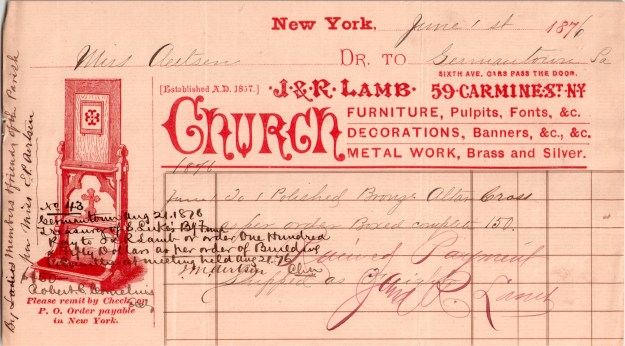 New York, June 1st 1876
Miss Aertsen Dr. to Germantown Pa
SIXTH AVE. CARS PASS THE DOOR.
[Established A.D. 1857.] J. & R. LAMB. 59 CARMINE ST. N.Y.
CHURCH
FURNITURE, Pulpits, Fonts, &c.
DECORATIONS, Banners, &c., &c.
METAL WORK, Brass and Silver.
1876
June 1 To 1 Polished Bronze Altar Cross
as per order Boxed complete 150.
Received Payment
Shipped as freight
J and R Lamb
No 43
Germantown Aug 21. 1876
Treasury of S. Luke's Bg Fund
Pay to J & R Lamb or order One Hundred
and fifty Dollars as per order of Building
Committee at meeting held Aug. 21. 76
M Aertsen Chn
Robert Cornelius
Please remit by Check, or
P. O. Order payable
in New York.
By Ladies Members & friends of the Parish
per Miss E. P. Aertsen